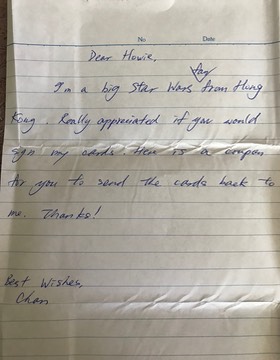 No. Date
Dear Howie,
fan
I'm a big Star Wars from Hong
Kong. Really appreciated if you would
sign my cards. Here is a coupon
for you to send the cards back to
me. Thanks!
Best Wishes,
Chan